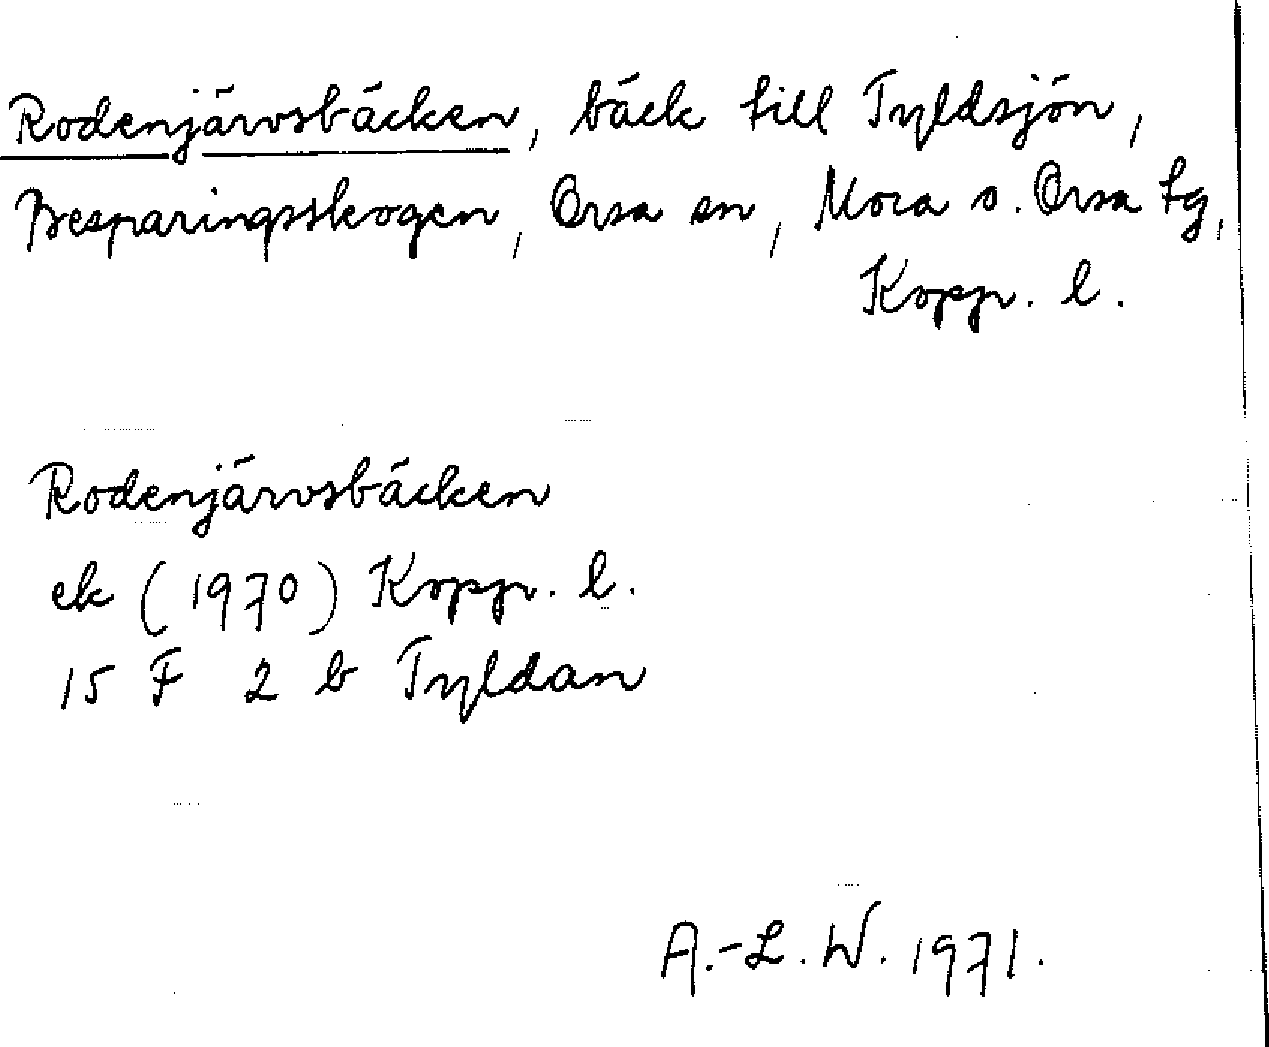 Rodenjärvsbäcken, bäck till Tyldsjön,
Besparingsskogen, Orsa sn, Mora o. Orsa tg,
Kopp. l.
Rodenjärvsbäcken
ek (1970) Kopp. l.
15 F 2 b Tyldan
A.-L. W. 1971.